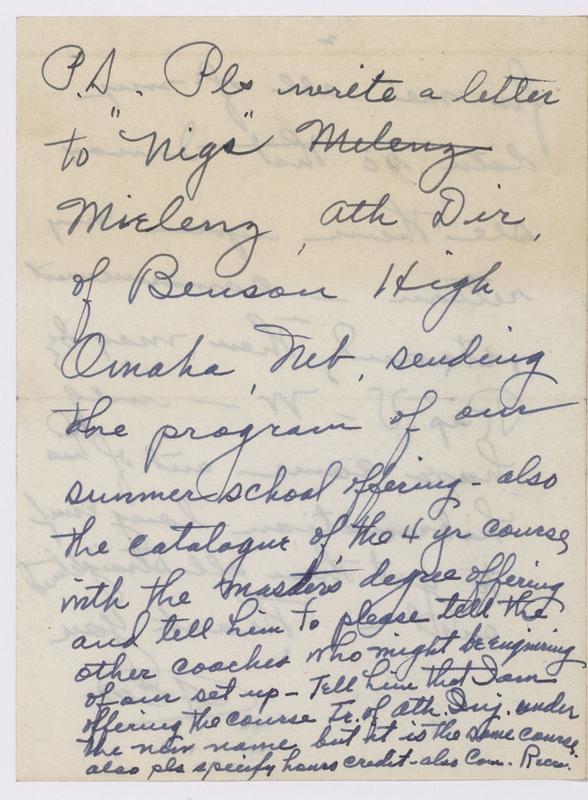 P.S. Pls write a letter
to "Nigs" Milenz
Mielenz, Ath Dir.
of Benson High
Omaha, Neb, sending
the program of our
summer school offering - also
the catalogue of the 4 yr course
with the master's degree offering
and tell him to please tell the
other coaches who might be enquiring
of our set up - Tell him that I am
offering the course Tr. of Ath. Inj. under
the new name, but it is the same course
also pls specify hours credit - also Com. Recre.